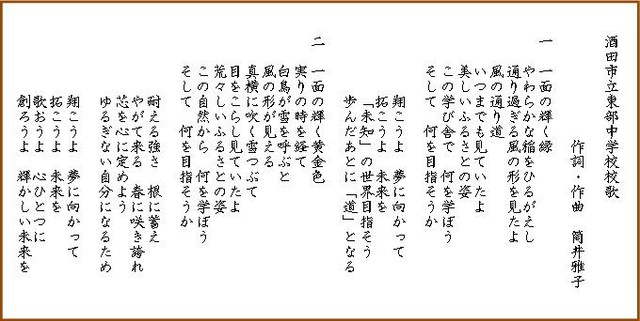 酒田市立東部中学校校歌
作詞・作曲 筒井雅子
一 一面の輝く緑
やわらかな稲をひるがえし
通り過ぎる風の形を見たよ
風の通り道
いつまでも見ていたよ
美しいふるさとの姿
この学び舎で 何を学ぼう
そして 何を目指そうか
翔こうよ 夢に向かって
拓こうよ 未来を
「未知」の世界目指そう
歩んだあとに「道」となる
二 一面の輝く黄金色
実りの時を経て
白鳥が雪を呼ぶと
風の形が見える
真横に吹く雪つぶて
目をこらし見ていたよ
荒々しいふるさとの姿
この自然から 何を学ぼう
そして 何を目指そうか
耐える強さ 根に蓄え
やがて来る 春に咲き誇れ
芯を心に定めよう
ゆるぎない自分になるため
翔こうよ 夢に向かって
拓こうよ 未来を
歌おうよ 心ひとつに
創ろうよ 輝かしい未来を